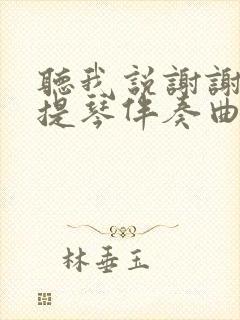 聽我説謝謝
提琴伴奏曲
林垂玉